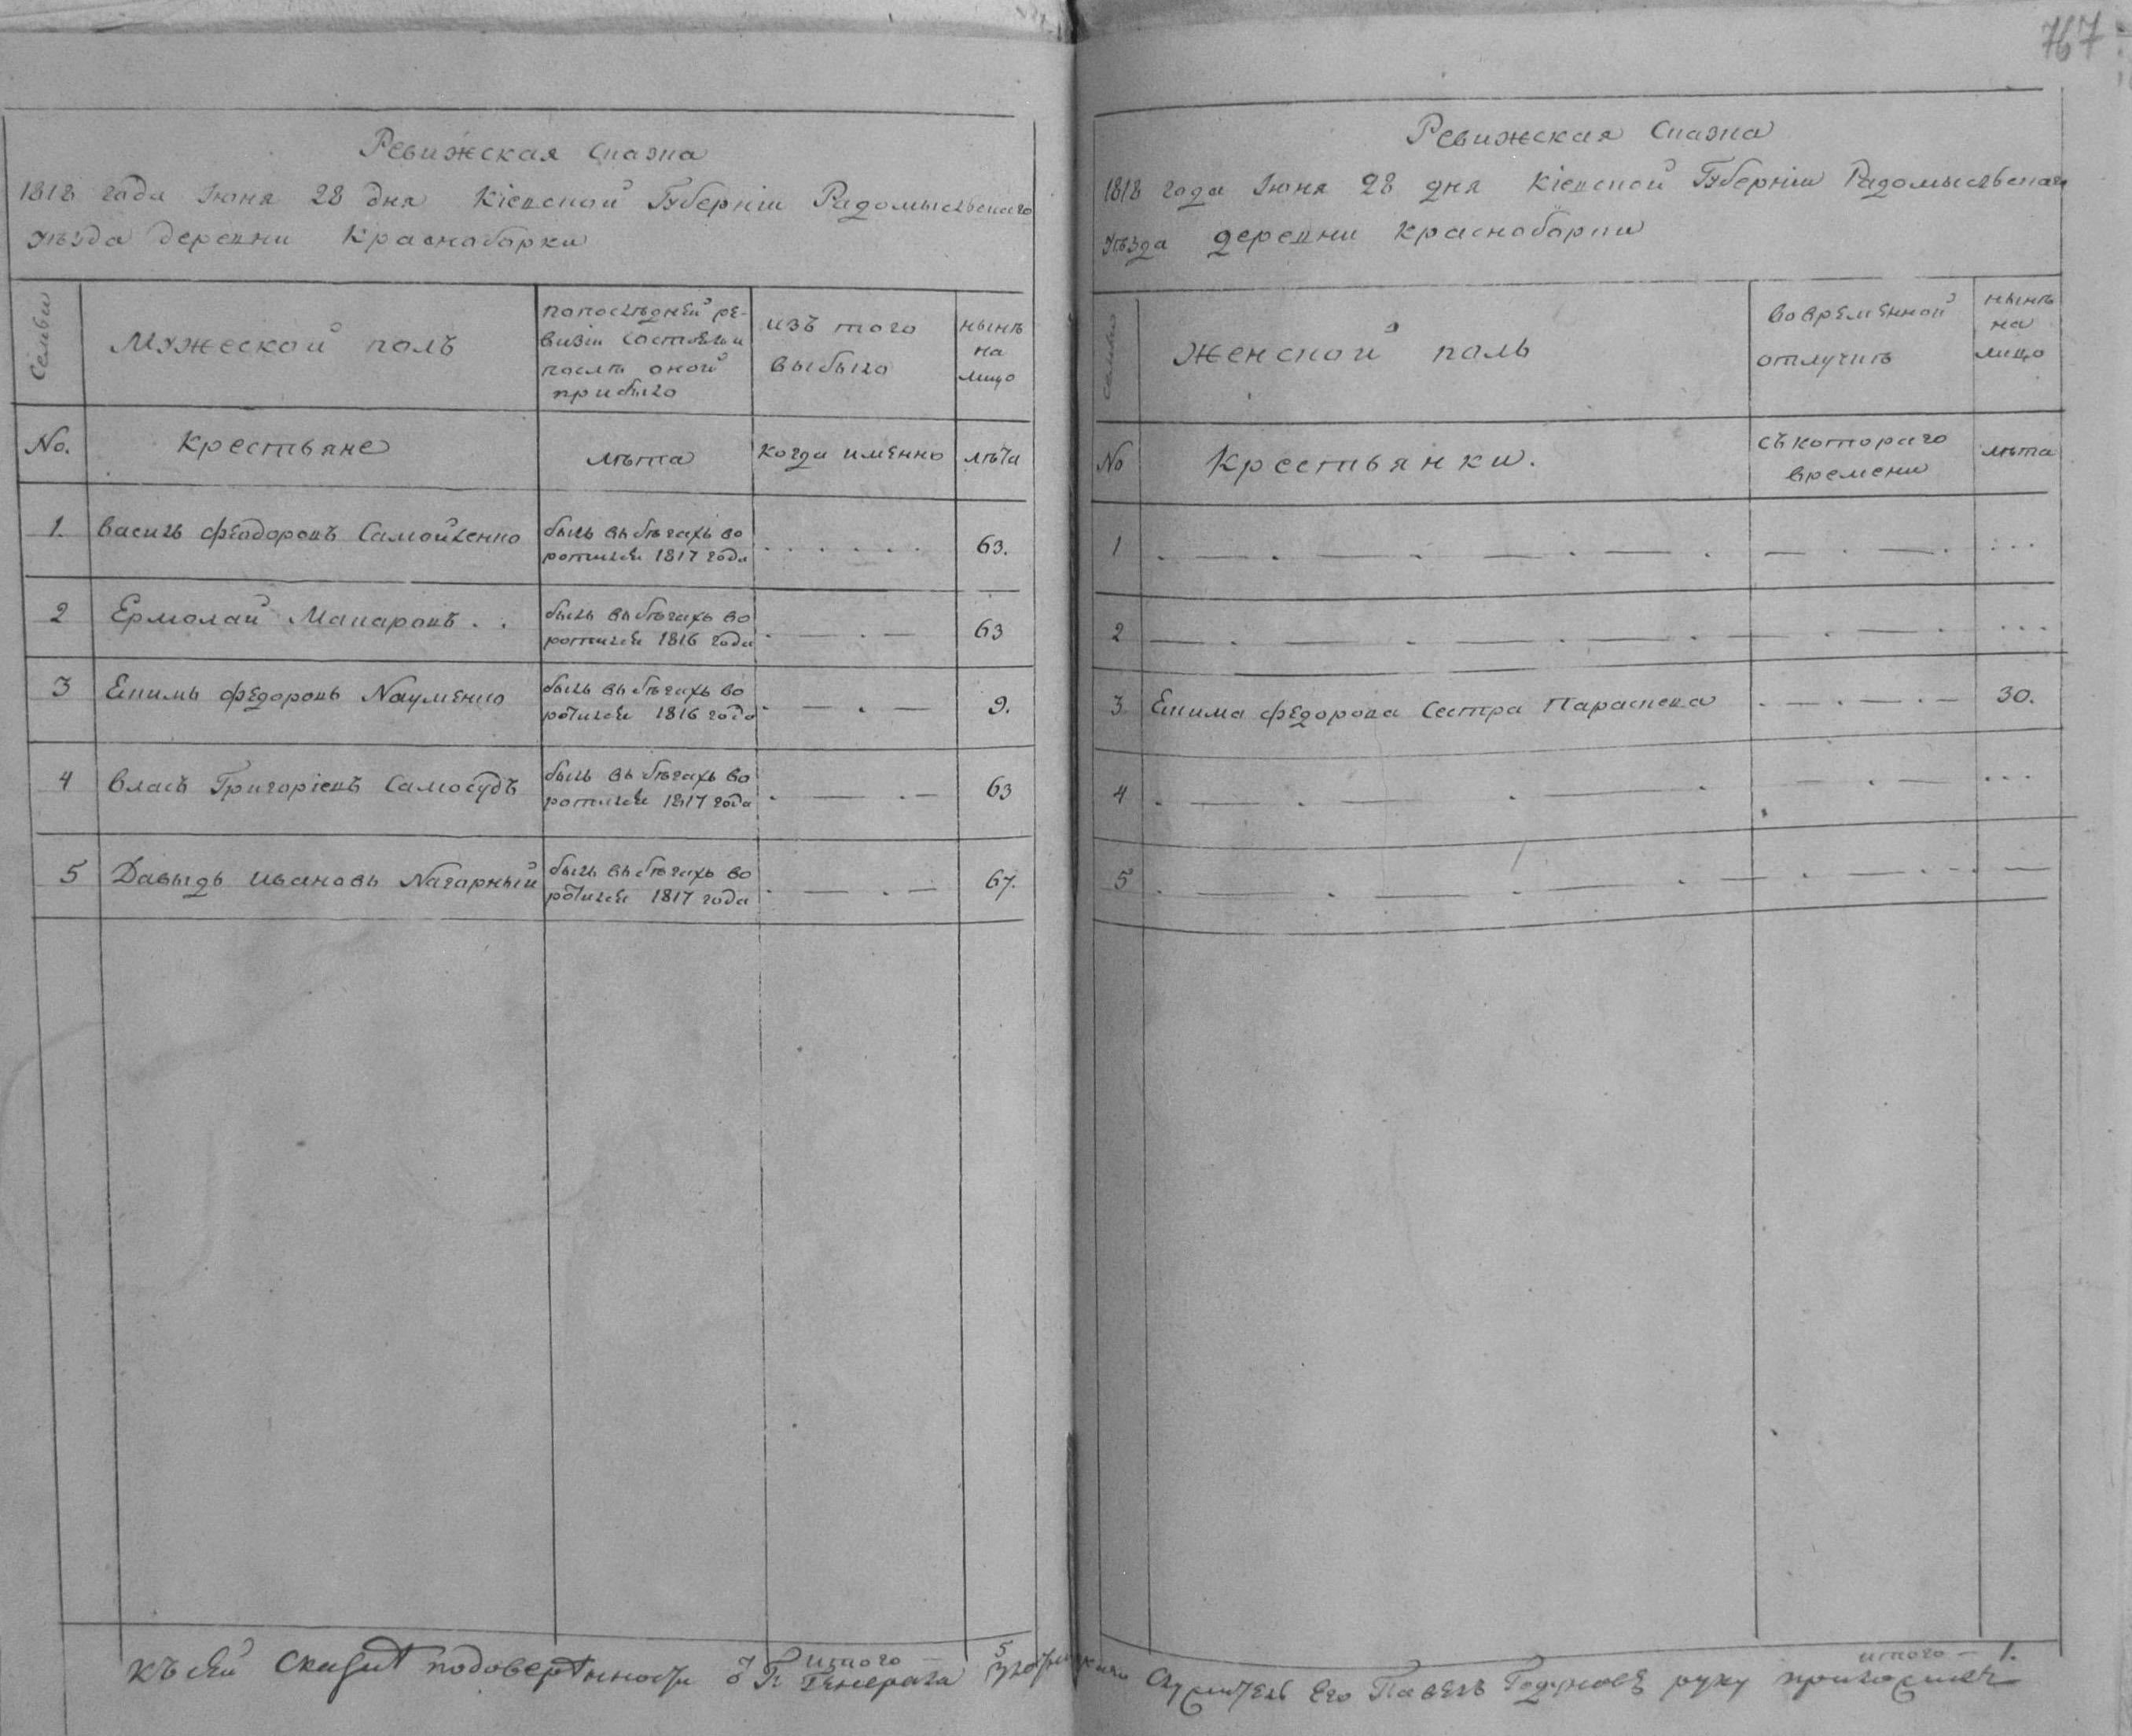 767
Ревижская Сказка
1818 года Июня 28 дня Кіевской Губерніи Радомысльскаго
уѣзда деревни Красноборки
Семьи
Мужеской полъ
попослѣдней ре-
визіи состояло и
послѣ оной
прибыло
изъ того
выбыло
нынѣ
на
лицо
No.
Крестьяне
лѣта
когда именно
лѣта
1. Василь Феодоровъ Самойленко быль въ бѣгахъ во
ротился 1817 года 63.
2 Ермолай Макаровъ быль въ бѣгахъ во
ротился 1816 года 63
3 Екимъ Федоровъ Науменко быль въ бѣгахъ во
ротился 1816 года 9.
4 Власъ Григоріевъ Самосудъ быль въ бѣгахъ во
ротился 1817 года 63
5 Давыдъ Ивановъ Нагорный быль въ бѣгахъ во
ротился 1817 года 67.
итого 5
Къ сей сказкѣ подоверѣнности от Г: Генерала
Ревижская Сказка
1818 года Июня 28 дня Кіевской Губерніи Радомысльскаго
уѣзда деревни Красноборки
Семьи
Женской полъ
вовременной
отлучкѣ
нынѣ
на
лицо
No
Крестьянки.
съкотораго
времени
лѣта
1
2
3 Екима Федорова сестра Параскева 30.
4
5
итого — 1.
Служитель Его Павелъ Годуновъ руку приложилъ